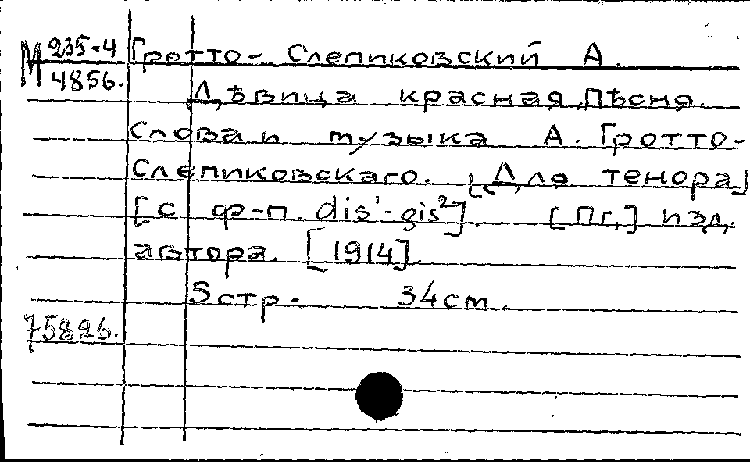 М 235-4
4856.
Гротто-Слепиковский А.
Дѣвица красная. Пѣсня.
Слова и музыка А. Гротто-
Слепиковскаго. [Для тенора]
[с ф-п. dis¹-gis²]. [Пг.] изд.
автора. [1914].
5 стр. 34 cm.
75826.